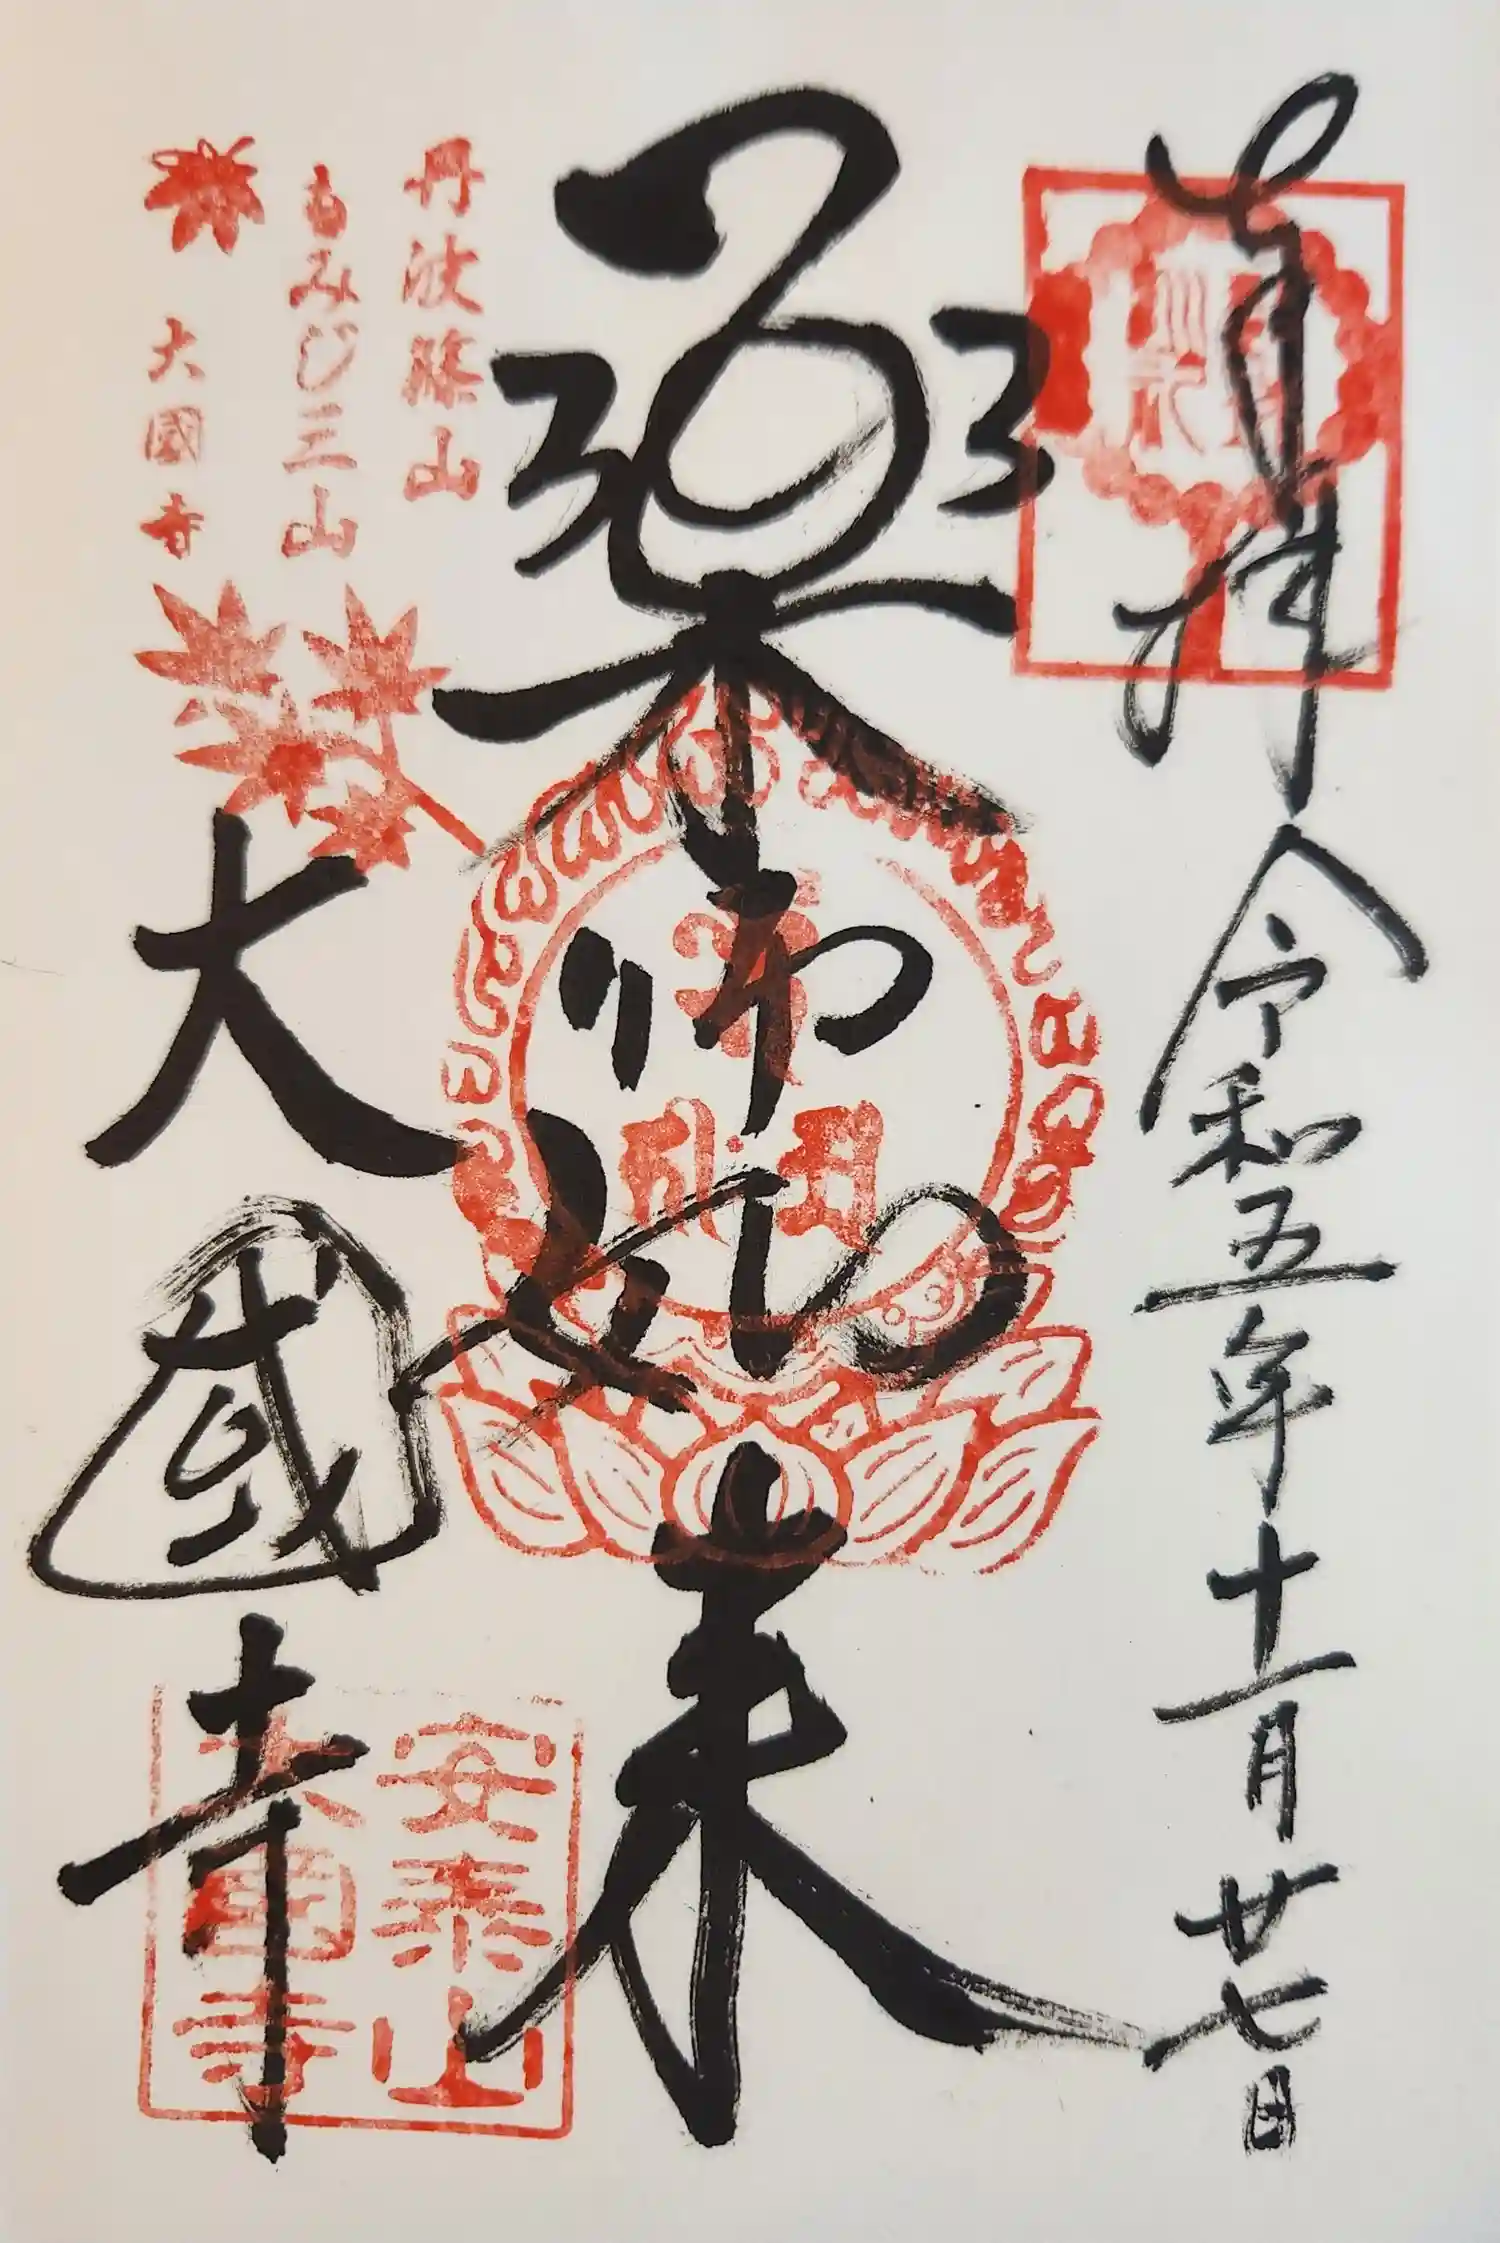 奉拝
令和五年十一月廿七日
薬師如来
丹波篠山
もみじ三山
大國寺
大國寺
安泰山
大國寺